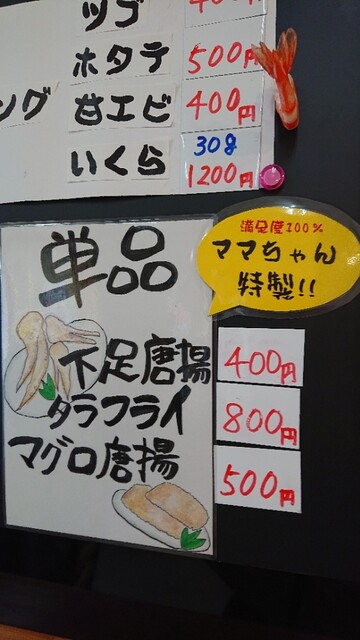 ツブ 400円
ホタテ 500円
ング 甘エビ 400円
いくら 30g 1200円
満足度100%
ママちゃん
特製!!
単品
下足唐揚 400円
タラフライ 800円
マグロ唐揚 500円